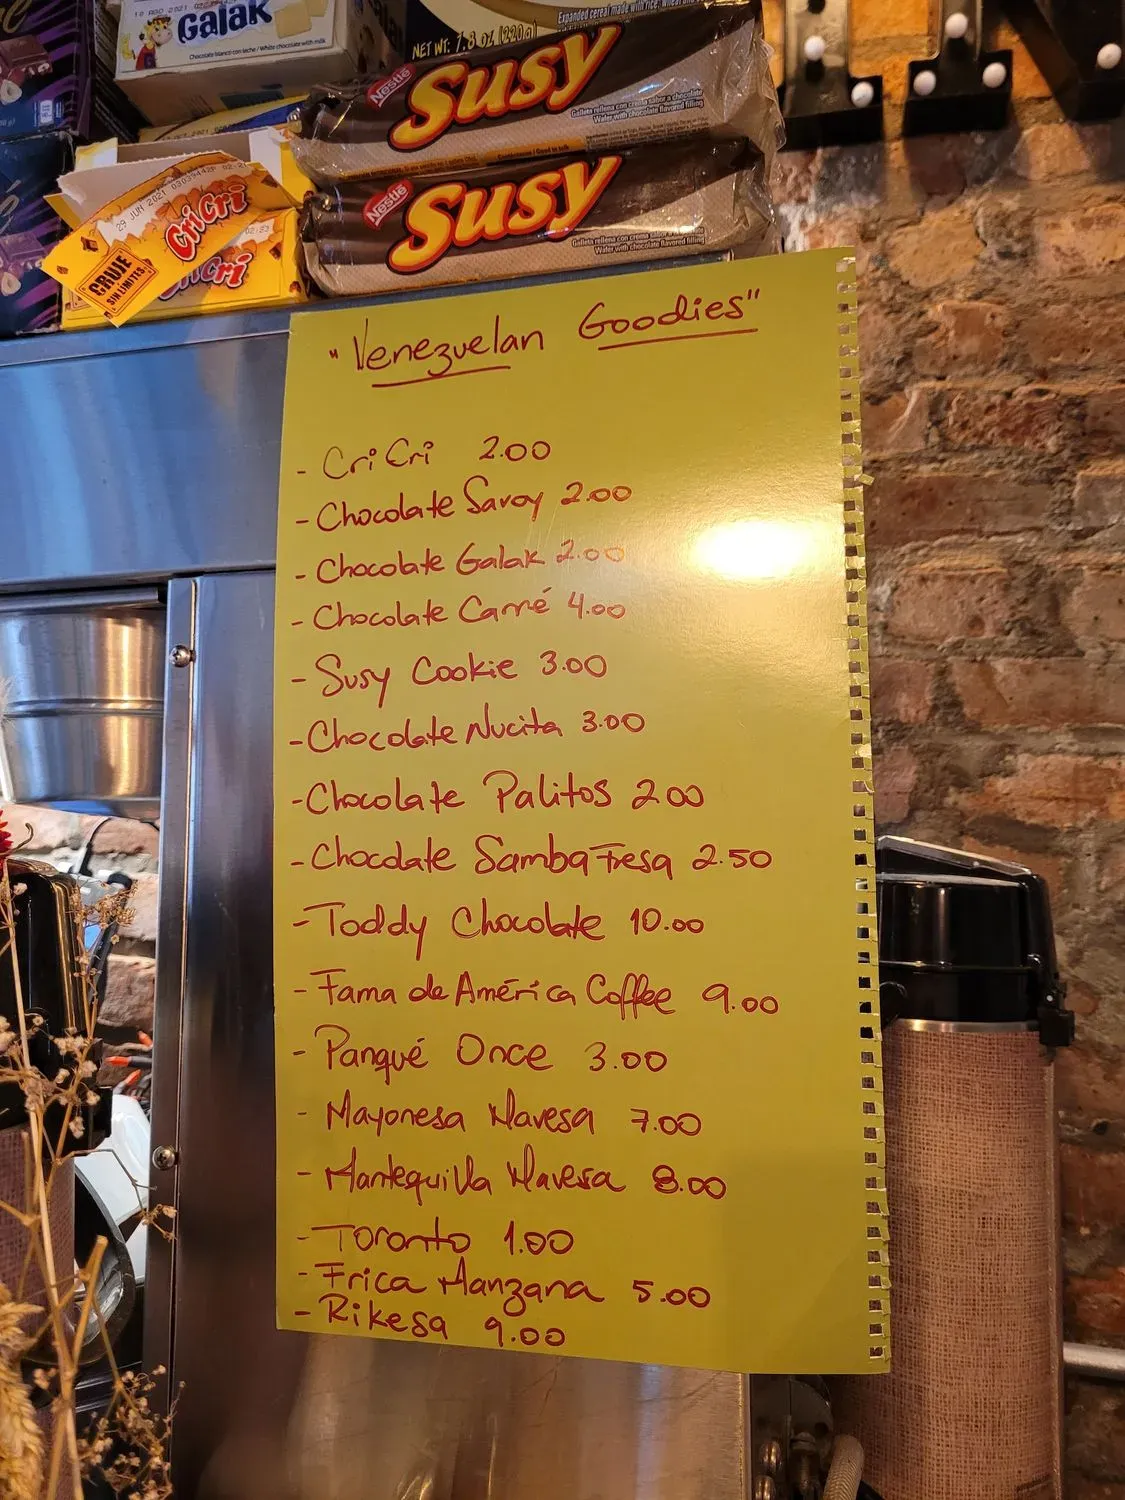 10 AGO 2021
Galak
Chocolate blanco con leche / White chocolate with milk
NET WT. 7.8 oz (220g)
Nestlé
Susy
Galleta rellena con crema sabor a chocolate
Wafer with chocolate flavored filling
Nestlé
Susy
Galleta rellena con crema sabor a chocolate
Wafer with chocolate flavored filling
29 JUN 2021
Cri Cri
CRUJE
SIN LÍMITES
"Venezuelan Goodies"
- Cri Cri 2.00
- Chocolate Savoy 2.00
- Chocolate Galak 2.00
- Chocolate Carré 4.00
- Susy Cookie 3.00
- Chocolate Nucita 3.00
- Chocolate Palitos 2 00
- Chocolate Samba Fresa 2.50
- Toddy Chocolate 10.00
- Fama de América Coffee 9.00
- Panqué Once 3.00
- Mayonesa Mavesa 7.00
- Mantequilla Mavesa 8.00
- Toronto 1.00
- Frica Manzana 5.00
- Rikesa 9.00